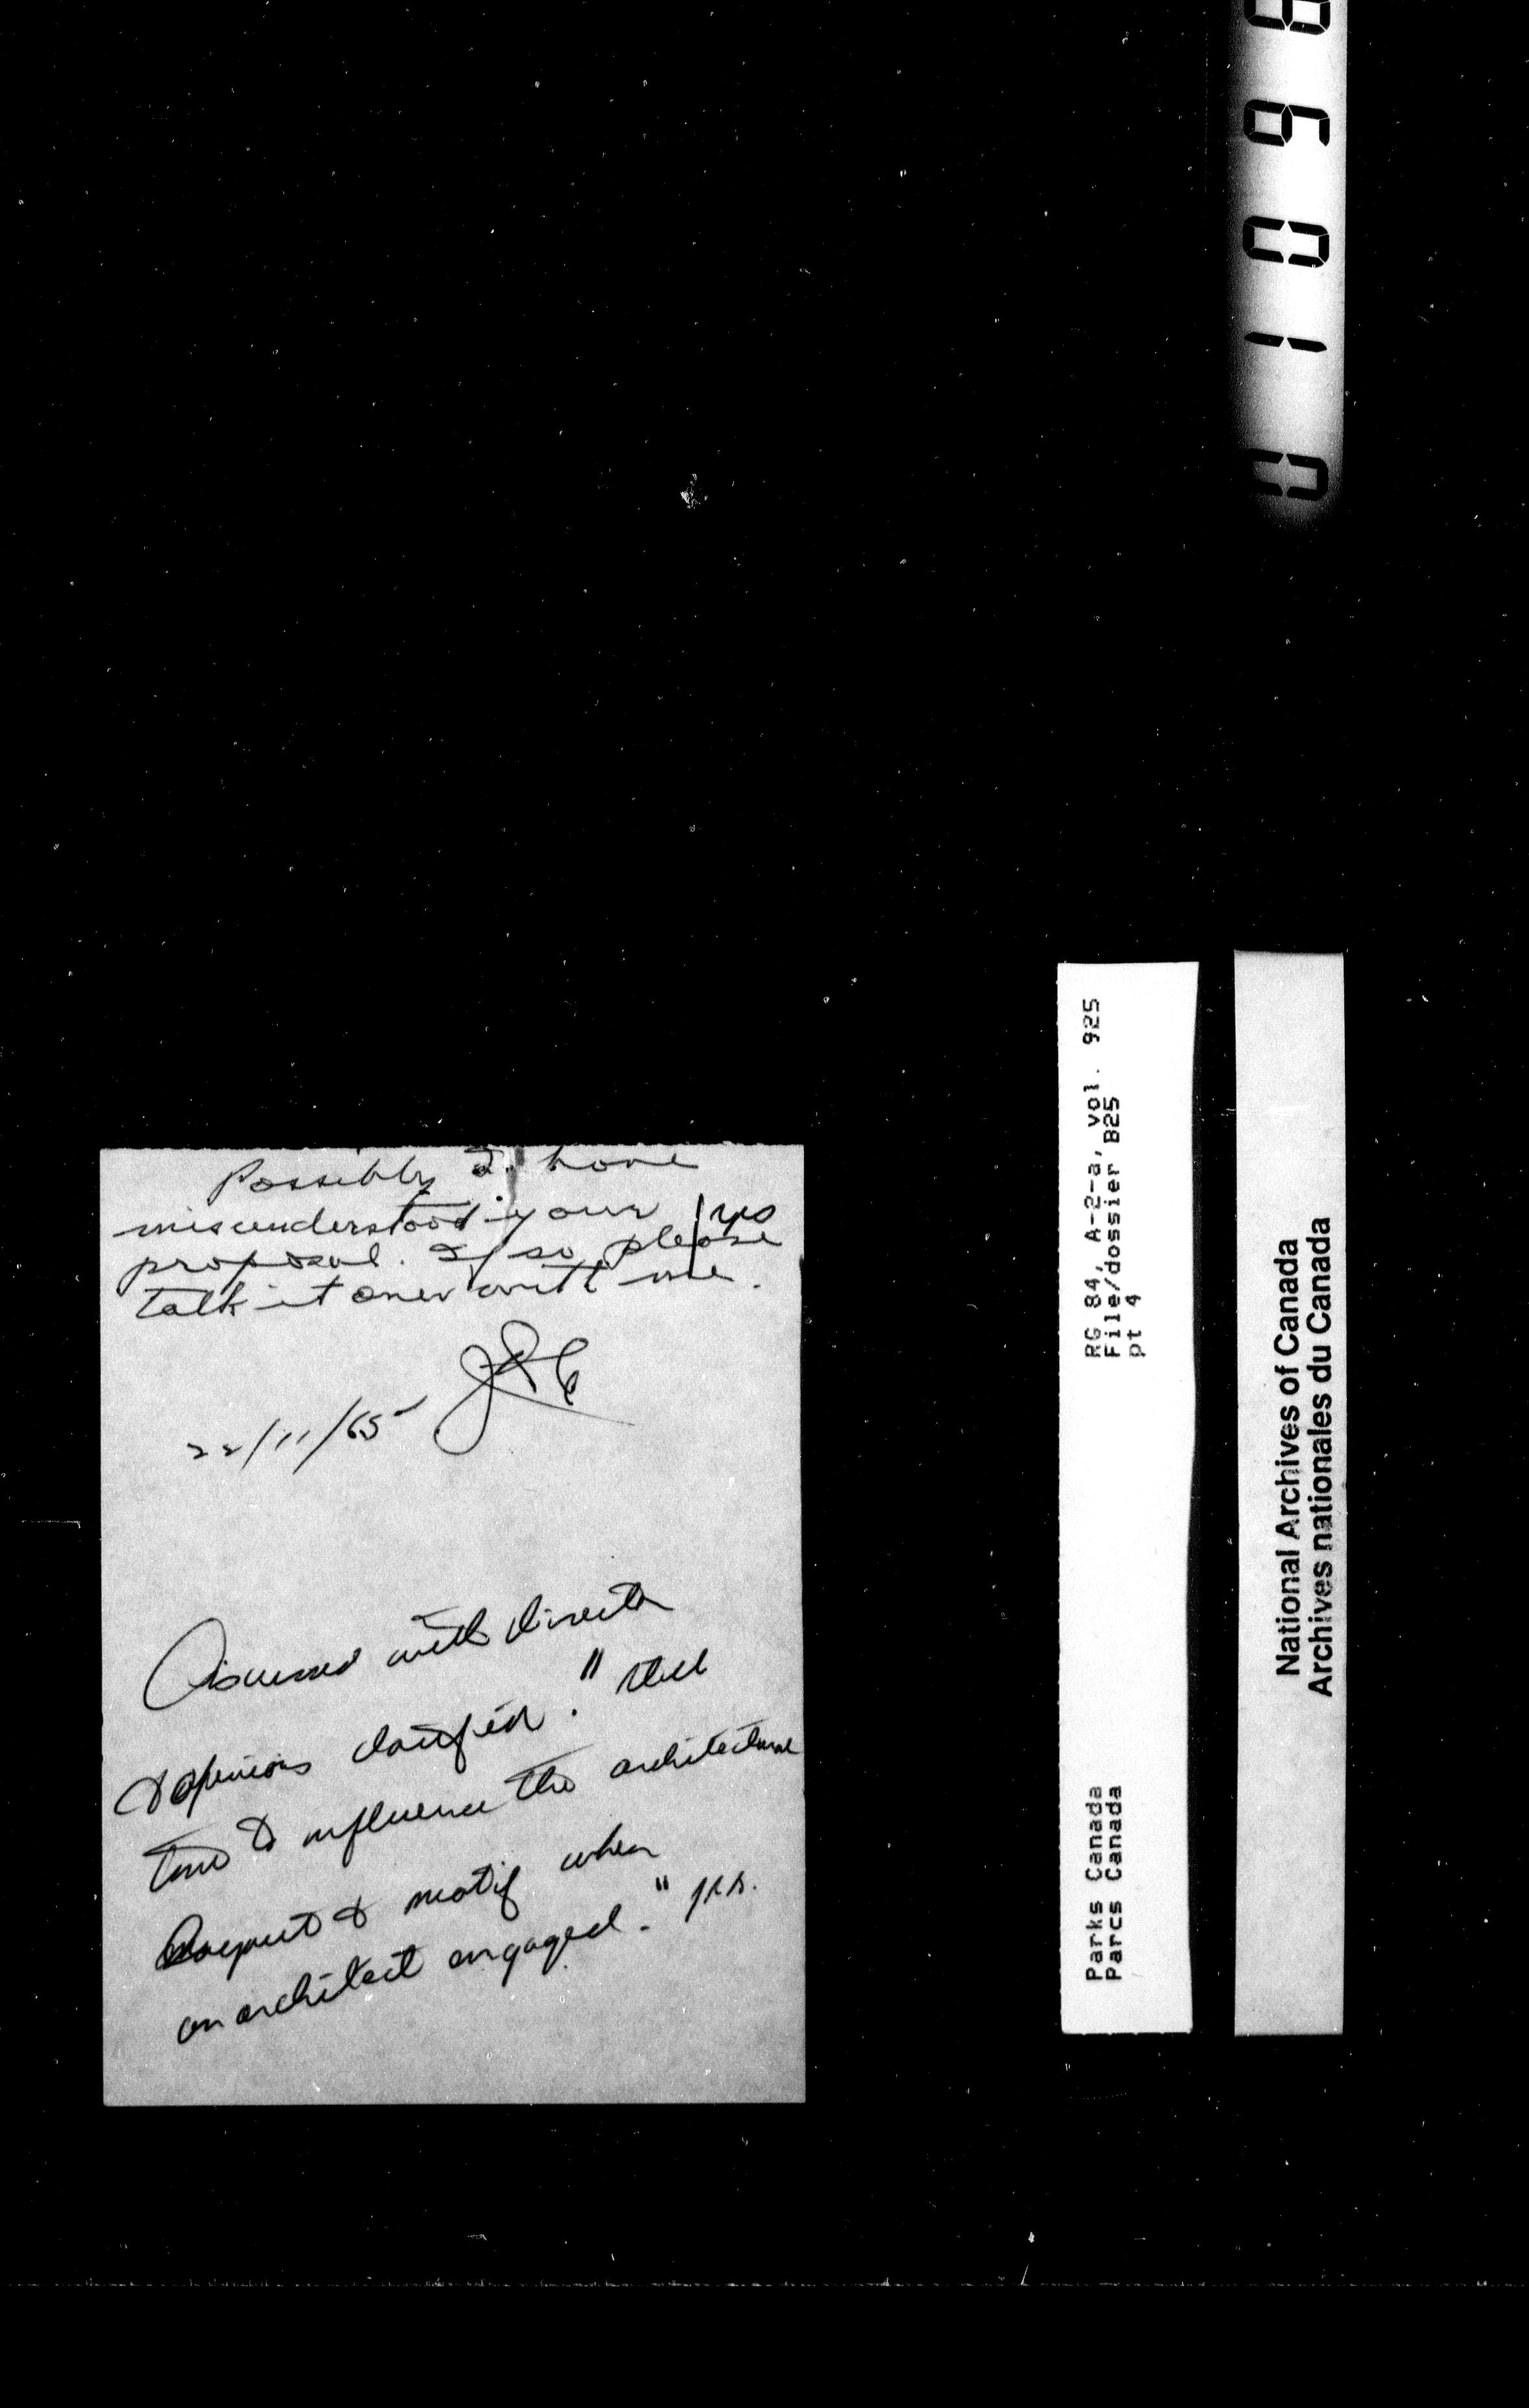 Possibly I have
misunderstood your | yes
proposal. If so, please
talk it over with me.
22/11/65
Discussed with director
& opinions clarified. " Still
time to influence the architectural
layout & motif when
an architect engaged. "
RG 84, A-2-a, vol. 925
File/dossier B25
pt 4
Parks Canada
Parcs Canada
National Archives of Canada
Archives nationales du Canada